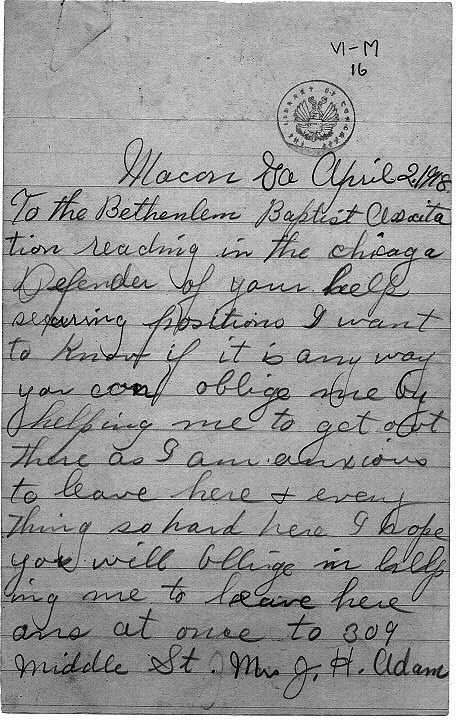 VI-M
16
THE LIBRARY OF CONGRESS
Macon Ga April 2, 1918.
To the Bethenlem Baptist Associta
tion reading in the chicaga
Defender of your help
securing positions I want
to know if it is any way
you can oblige me by
helping me to get out
there as I am anxious
to leave here & every
thing so hard here I hope
you will oblige in help
ing me to leave here
ans at once to 309
Middle St. Mrs J. H. Adam